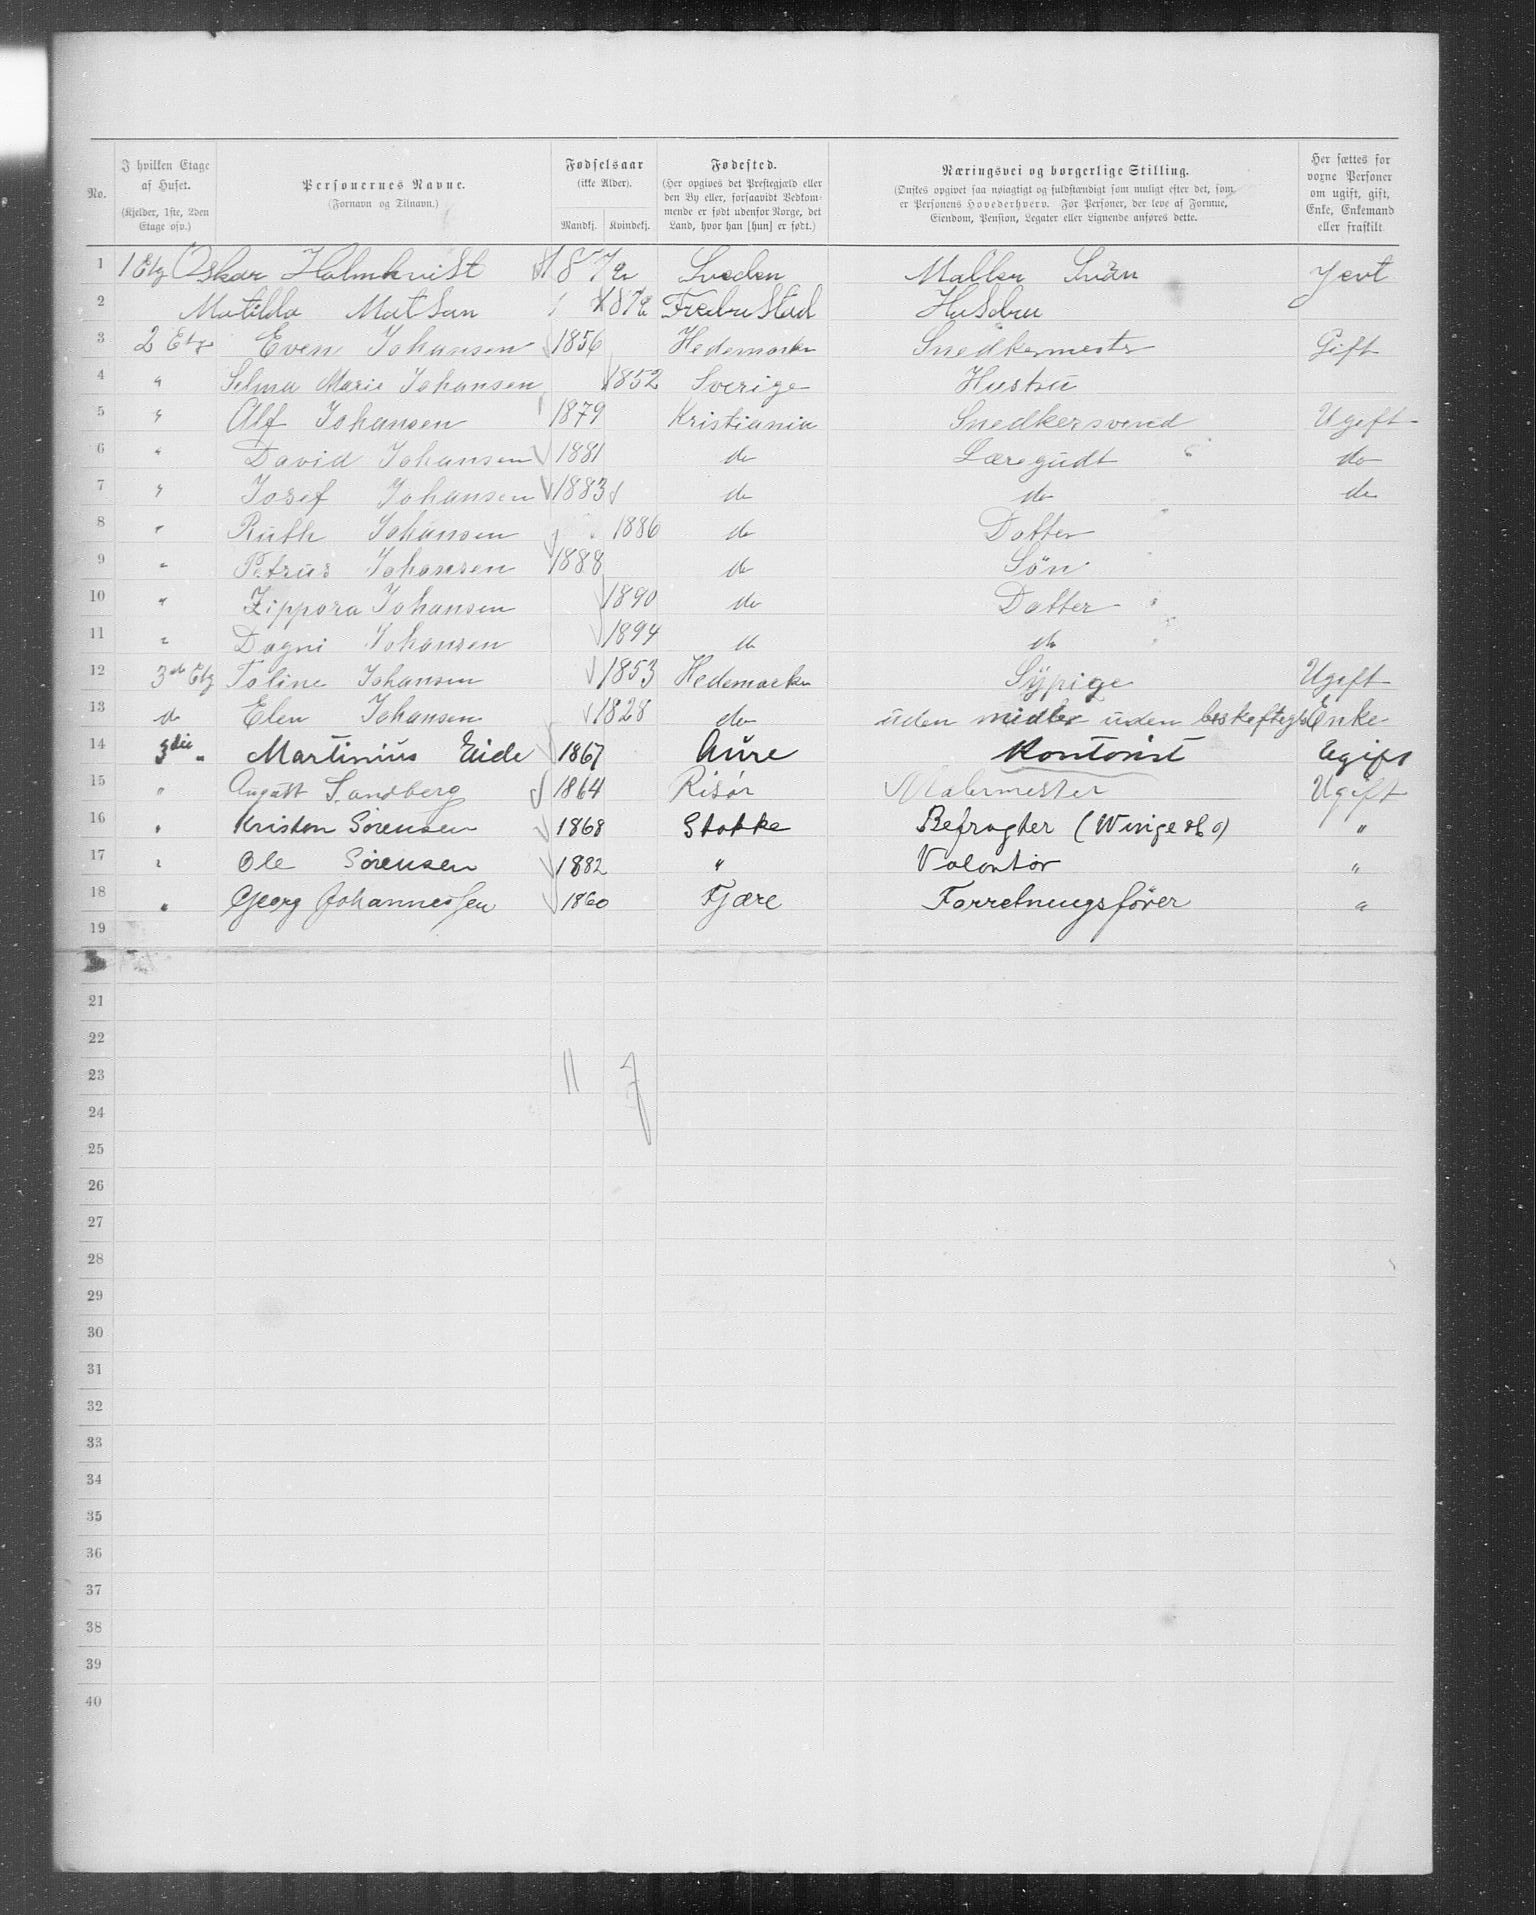 No.
I hvilken Etage af Huset.
(Kjelder, 1ste, 2den Etage osv.)
Personernes Navne.
(Fornavn og Tilnavn.)
Fødselsaar
(ikke Alder).
Mandkj. Kvindekj.
Fødested.
(Her opgives det Prestegjæld eller den By eller, forsaavidt Vedkommende er født udenfor Norge, det Land, hvor han [hun] er født.)
Næringsvei og borgerlige Stilling.
(Ønskes opgivet saa nøiagtigt og fuldstændigt som muligt efter det, som er Personens Hovederhverv. For Personer, der leve af Formue, Eiendom, Pension, Legater eller Lignende anføres dette.
Her sættes for vozne Personer om ugift, gift, Enke, Enkemand eller fraskilt.
1 1 Etg Oskar Holmkvist Sveden Maller Svän Jevt
2 Matilda Matsan Fredrustad Husdru
3 2 Etg Even Johansen 1856 Hedemarken Snedkermester Gift
4 " Selma Marie Johansen 1852 Sverige Hustru
5 " Alf Johansen 1879 Kristiania Snedkersvend Ugift
6 " David Johansen 1881 do Læregudt do
7 " Josef Johansen 1883 do do do
8 " Ruth Johansen 1886 do Datter
9 " Petrus Johansen 1888 do Sön
10 " Zippora Johansen 1890 do Datter
11 " Dagni Johansen 1894 do do
12 3de Etg Toline Johansen 1853 Hedemarken Sÿpige Ugift
13 do Elen Johansen 1828 do uden midler uden beskeftigls Enke
14 3die " Martinius Eide 1867 Aure Kontorist Ugift
15 " August Sandberg 1864 Risør Malermester Ugift
16 " Kristen Sörensen 1868 Stokke Befragter (Winge & Co) "
17 " Ole Sörensen 1882 " Volontör "
18 " Georg Johannessen 1860 Fjære Forretningsfører "
19
21
22
23 11 7
24
25
26
27
28
29
30
31
32
33
34
35
36
37
38
39
40